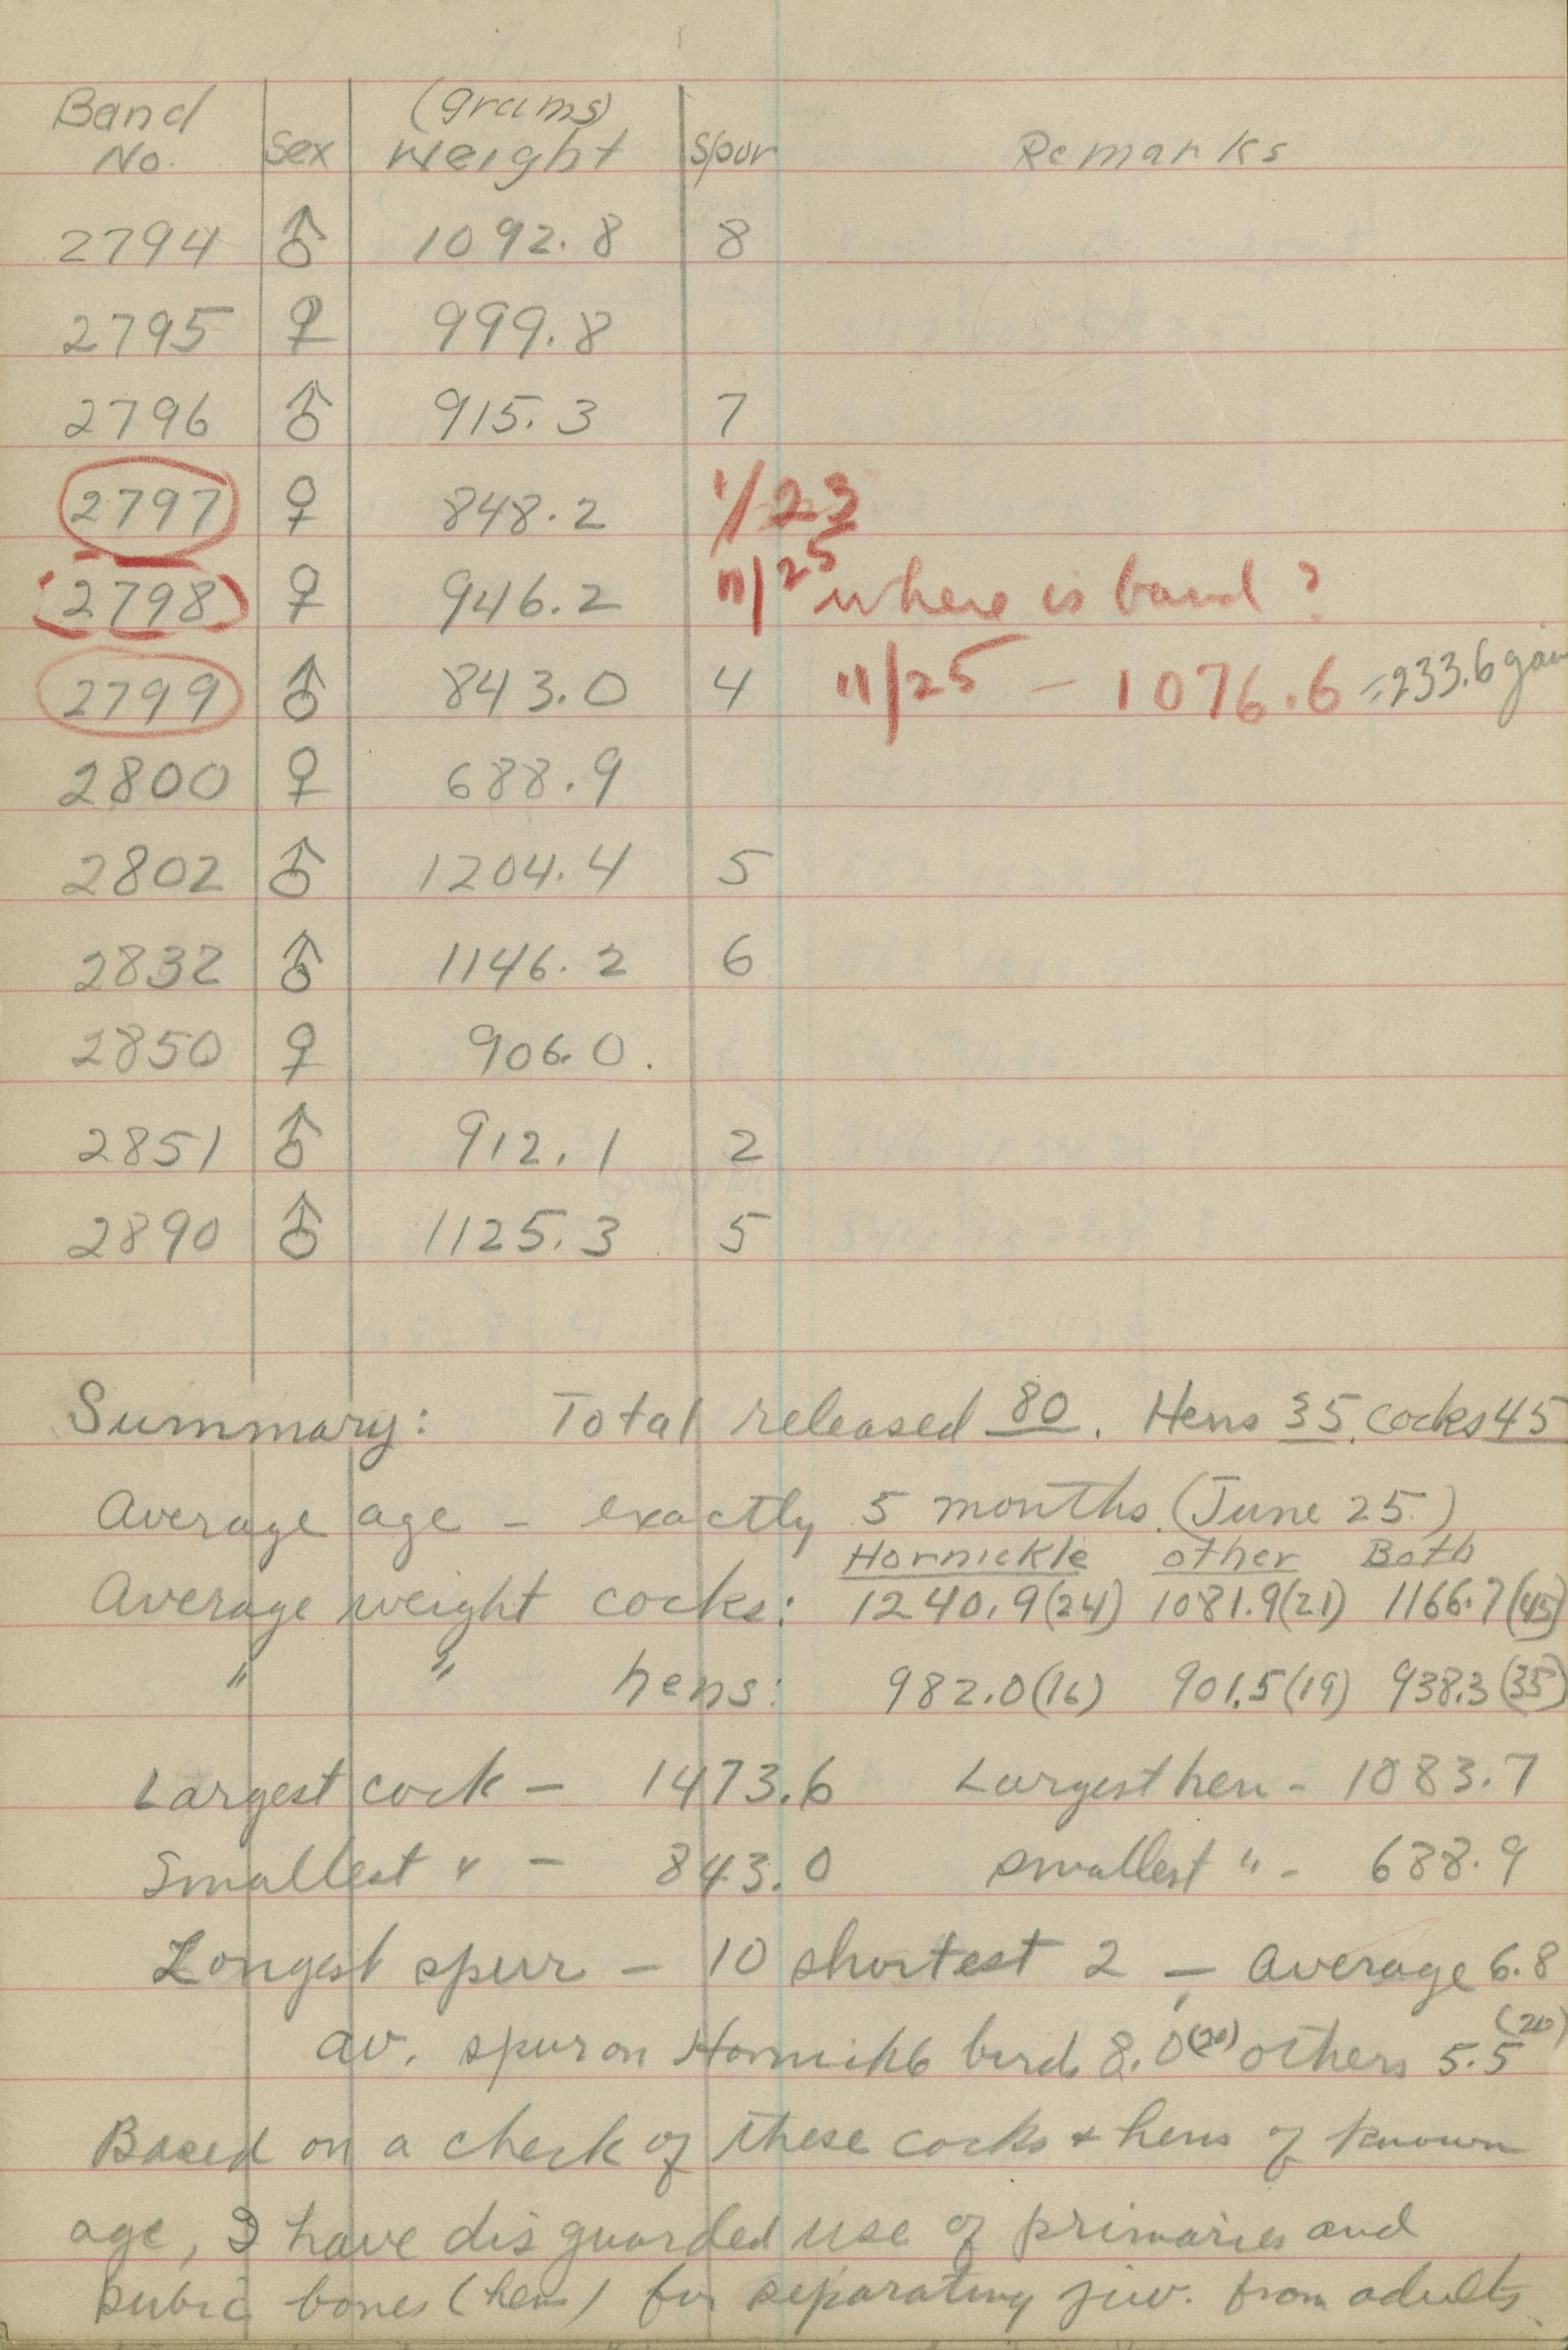 Band (grams)
No. Sex Weight Spur Remarks
2794 ♂ 1092.8 8
2795 ♀ 999.8
2796 ♂ 915.3 7
2797 ♀ 848.2 1/23
2798 ♀ 946.2 11/25 where is band ?
2799 ♂ 843.0 4 11/25 — 1076.6 = 233.6 gain
2800 ♀ 688.9
2802 ♂ 1204.4 5
2832 ♂ 1146.2 6
2850 ♀ 906.0.
2851 ♂ 912.1 2
2890 ♂ 1125.3 5
Summary: Total released 80. Hens 35, cocks 45
Average age — exactly 5 months. (June 25.)
Hornickle other Both
Average weight cocks: 1240.9(24) 1081.9(21) 1166.7(45)
" " hens: 982.0(16) 901.5(19) 938.3(35)
Largest cock — 1473.6 Largest hen - 1083.7
Smallest " — 843.0 smallest " - 688.9
Longest spur — 10 shortest 2 — Average 6.8
av. spur on bird 8.0(20) others 5.5(20)
Based on a check of these cocks & hens of known
age, I have disguarded use of primaries and
pubic bones (hens) for separating juv. from adults